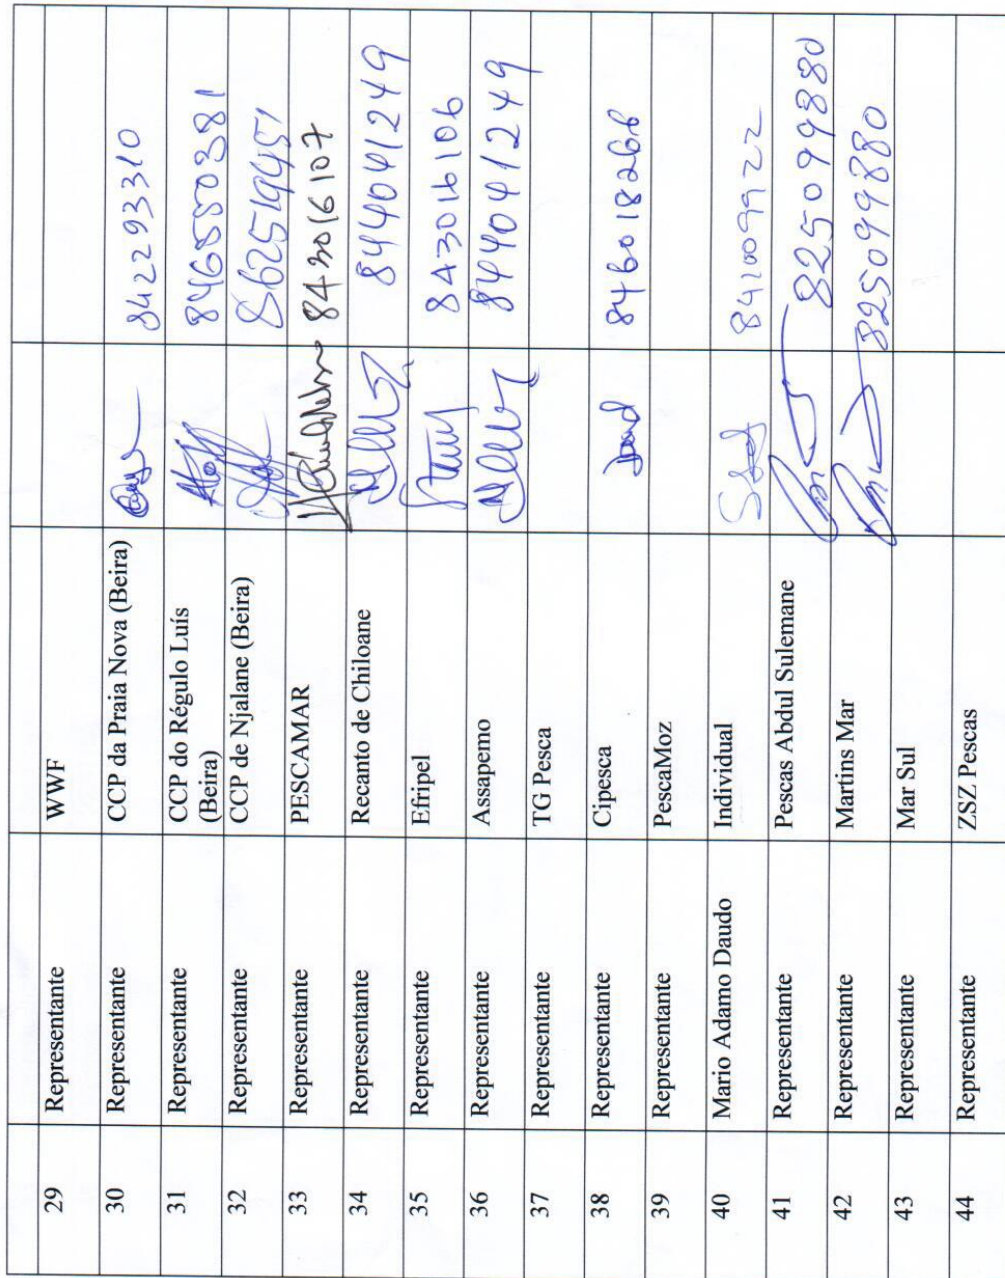 29 Representante WWF
30 Representante CCP da Praia Nova (Beira) 842293310
31 Representante CCP do Régulo Luís
(Beira) 846850381
32 Representante CCP de Njalane (Beira)
33 Representante PESCAMAR 843016107
34 Representante Recanto de Chiloane 844041249
35 Representante Efripel 843016106
36 Representante Assapemo 844041249
37 Representante TG Pesca
38 Representante Cipesca 846018268
39 Representante PescaMoz
40 Mario Adamo Daudo Individual 841009922
41 Representante Pescas Abdul Sulemane 825099880
42 Representante Martins Mar 825099880
43 Representante Mar Sul
44 Representante ZSZ Pescas